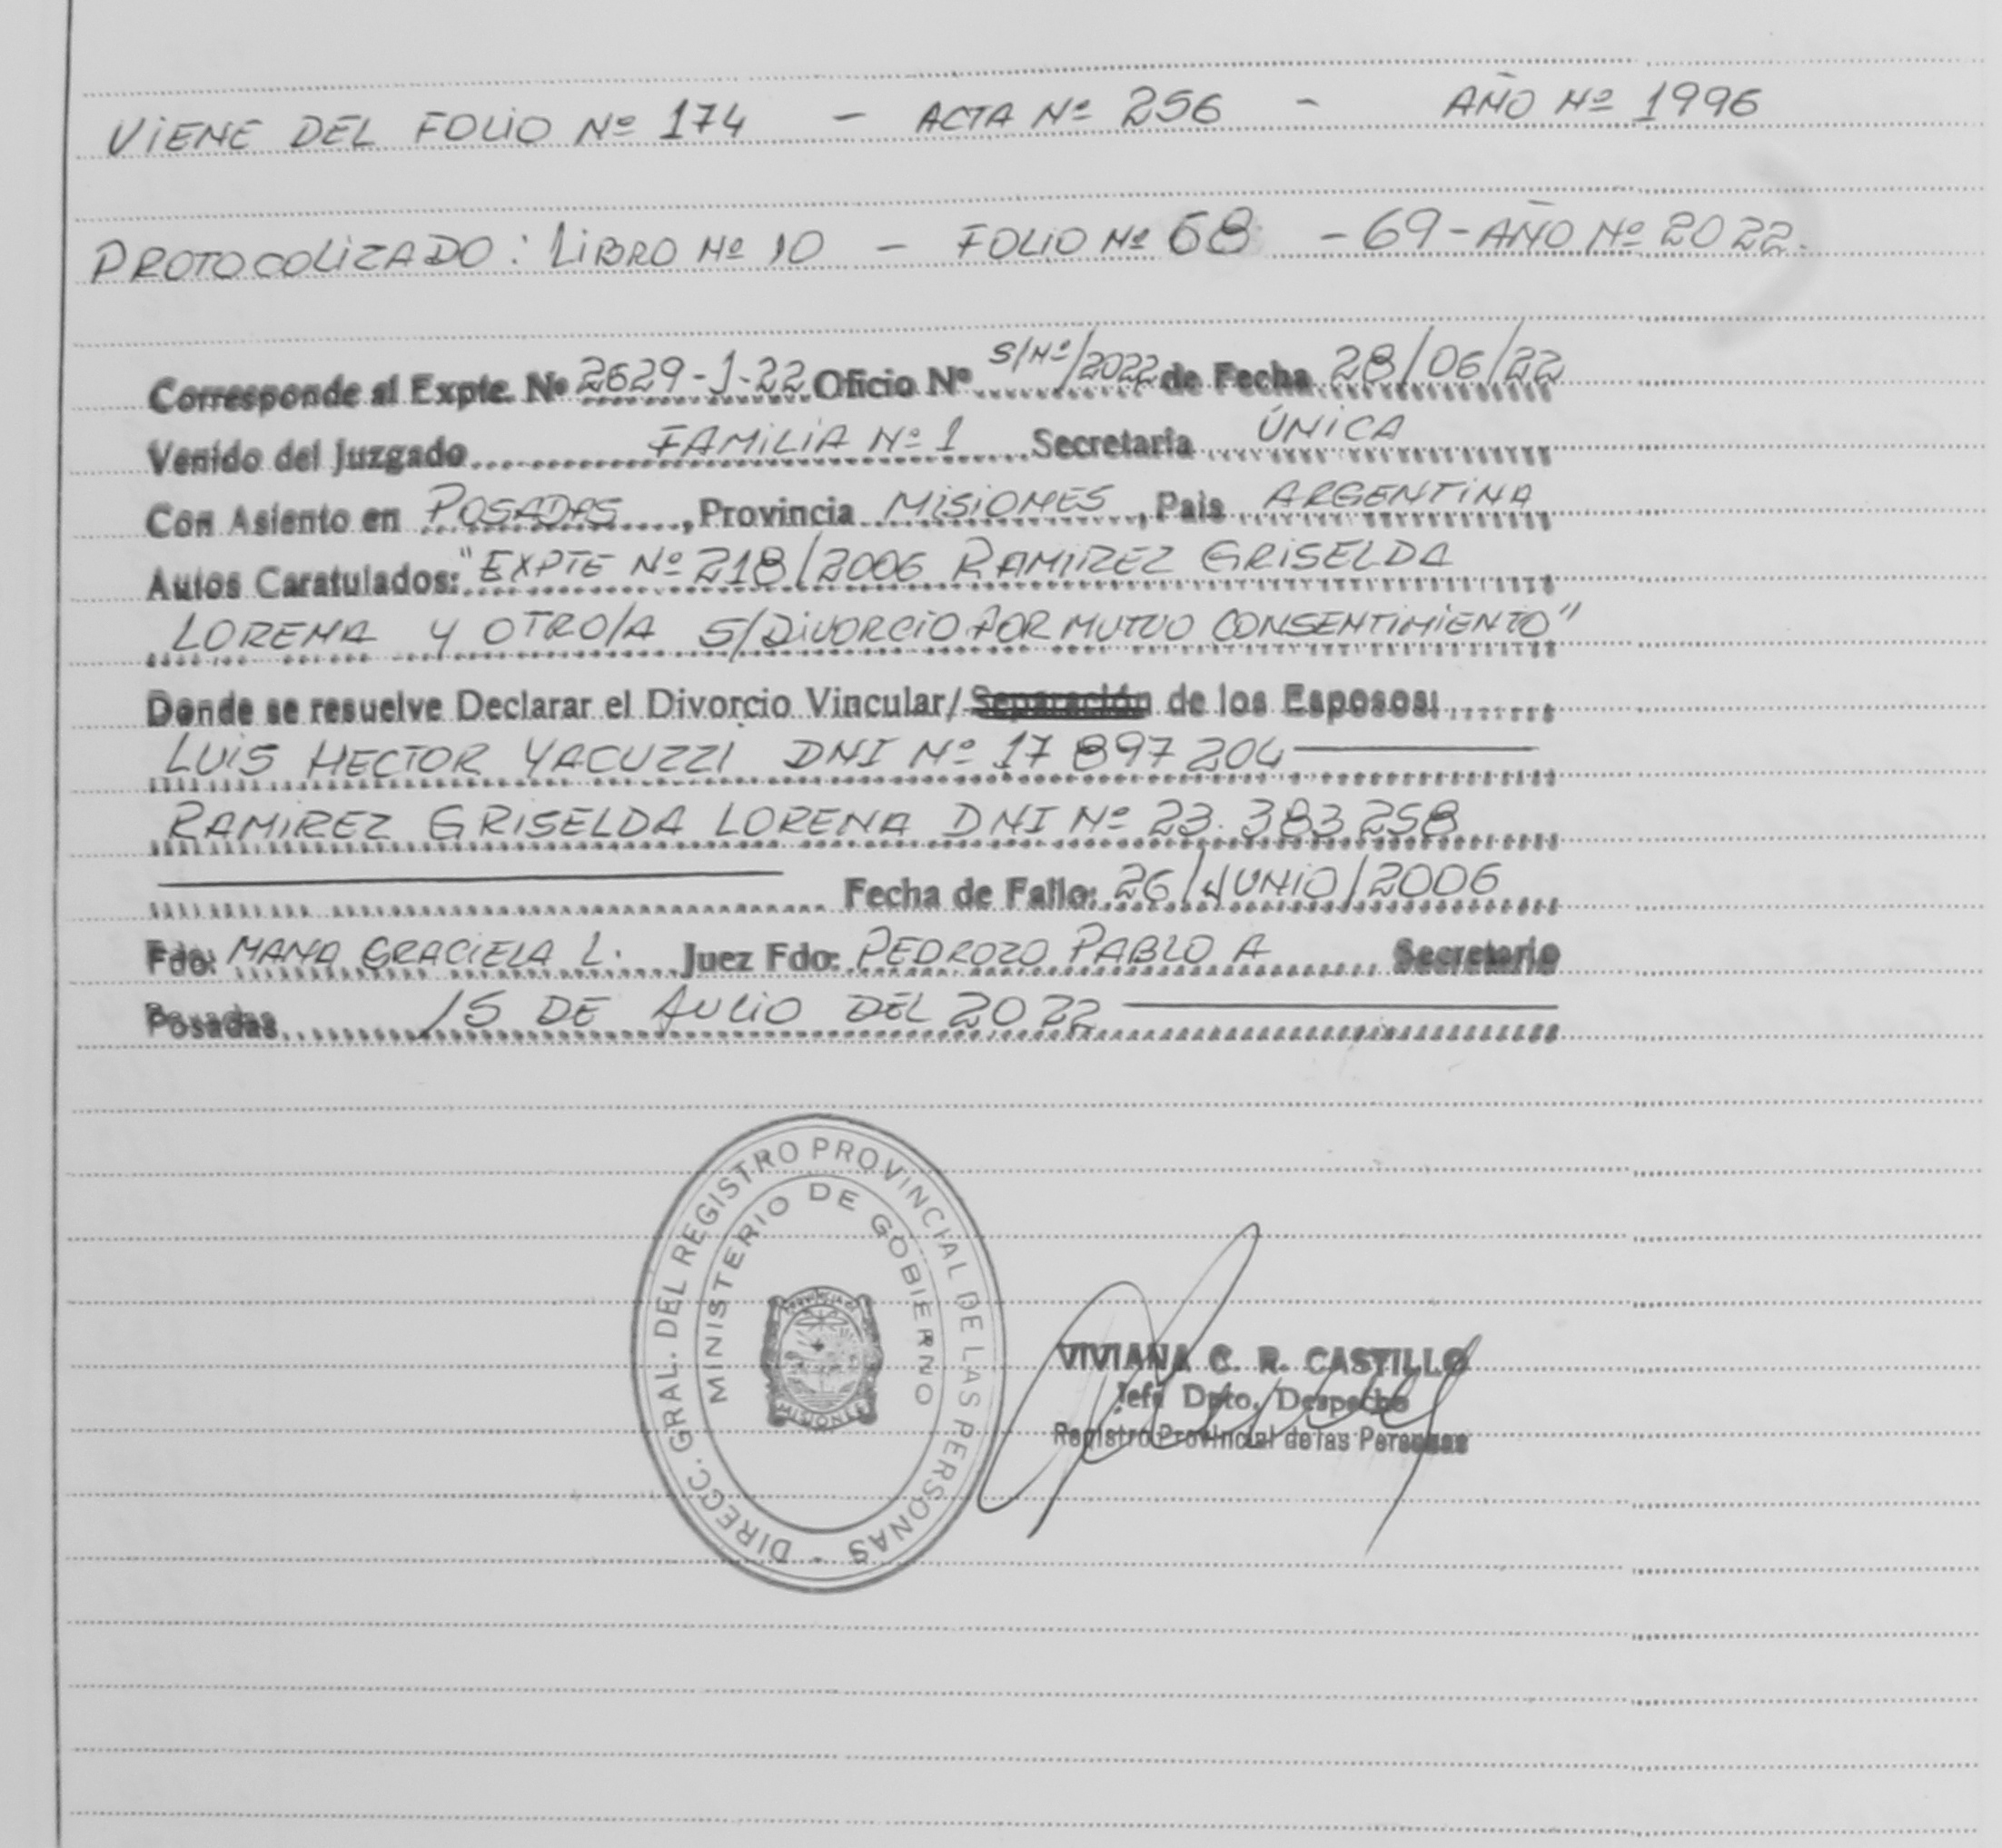 VIENE DEL FOLIO Nº 174 - ACTA Nº 256 - AÑO Nº 1996
PROTOCOLIZADO: LIBRO Nº 10 - FOLIO Nº 68 - 69 - AÑO Nº 2022.
Corresponde al Expte. Nº 2629-J-22 Oficio Nº S/Nº/2022 de Fecha 28/06/22
Venido del Juzgado FAMILIA Nº 1 Secretaría ÚNICA
Con Asiento en POSADAS, Provincia MISIONES, País ARGENTINA
Autos Caratulados: "EXPTE Nº 218/2006 RAMIREZ GRISELDA
LORENA Y OTRO/A S/DIVORCIO POR MUTUO CONSENTIMIENTO"
Donde se resuelve Declarar el Divorcio Vincular/ Separación de los Esposos:
LUIS HECTOR YACUZZI DNI Nº 17 897 204
RAMIREZ GRISELDA LORENA DNI Nº 23.383 258
Fecha de Fallo: 26/JUNIO/2006
Fdo: MANA GRACIELA L. Juez Fdo: PEDROZO PABLO A Secretario
Posadas 15 DE JULIO DEL 2022
DIRECC. GRAL. DEL REGISTRO PROVINCIAL DE LAS PERSONAS -
MINISTERIO DE GOBIERNO
PROVINCIA DE
MISIONES
VIVIANA C. R. CASTILLO
Jefa Dpto. Despacho
Registro Provincial de las Personas